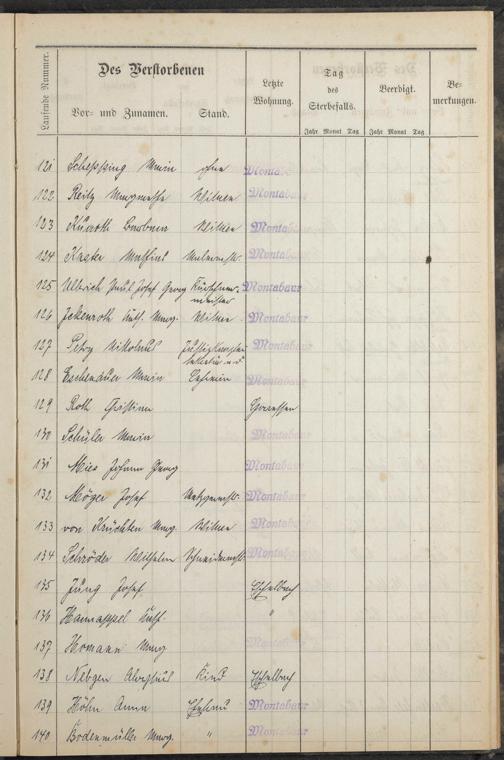 Laufende Nummer.
Des Verstorbenen
Vor- und Zunamen. Stand.
Letzte Wohnung.
Tag des Sterbefalls.
Jahr Monat Tag
Beerdigt.
Jahr Monat Tag
Bemerkungen.
121 Maria ohne Montabaur
122 Reitz Margaretha Witwe Montabaur
123 Barbara Witwe Montabaur
124 Mathias Montabaur
125 Ulbrich Josef Georg Kürschnermeister Montabaur
126 Jckenroth Kath. Marg. Witwe Montabaur
127 Petry Nikolaus Montabaur
128 Eschenauer Maria Lehrerin Montabaur
129 Roth Christian
130 Schüler Maria Montabaur
131 Mies Johann Georg Montabaur
132 Möger Josef Metzgermeistr. Montabaur
133 von Kruchten Marg. Witwe Montabaur
134 Schröder Wilhelm Schneidermstr. Montabaur
135 Jung Josef Eschelbach
136 Hannappel Kath. "
137 Homann Marg Montabaur
138 Nebgen Aloysius Kind Eschelbach
139 Höhn Anna Ehefrau Montabaur
140 Bodenmüller Marg. " Montabaur